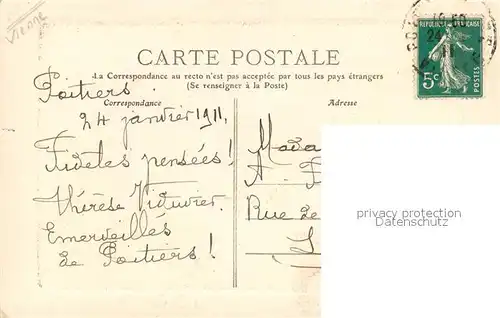 Vienne
REPUBLIQUE FRANÇAISE
5c
POSTES
CARTE POSTALE
La Correspondance au recto n'est pas acceptée par tous les pays étrangers
(Se renseigner à la Poste)
Correspondance
Adresse
Poitiers
24 janvier 1911.
Fideles pensées!
Thérèse
Emerveillés
de Poitiers!
Mada
A.
Rue de
privacy protection
Datenschutz